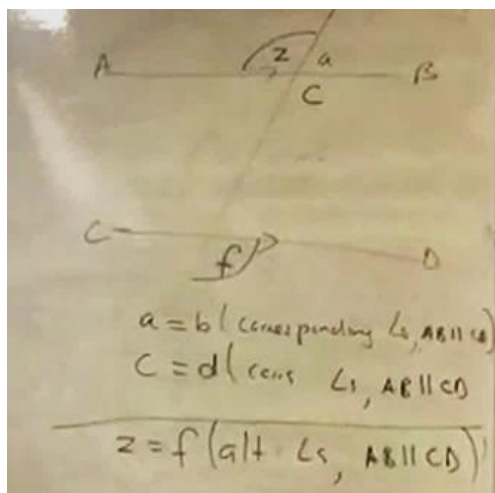 z a
A B
C
C D
f
a = b ( corresponding ∠s, AB || CD)
C = d ( corrs ∠s, AB || CD
z = f (alt ∠s, AB || CD)